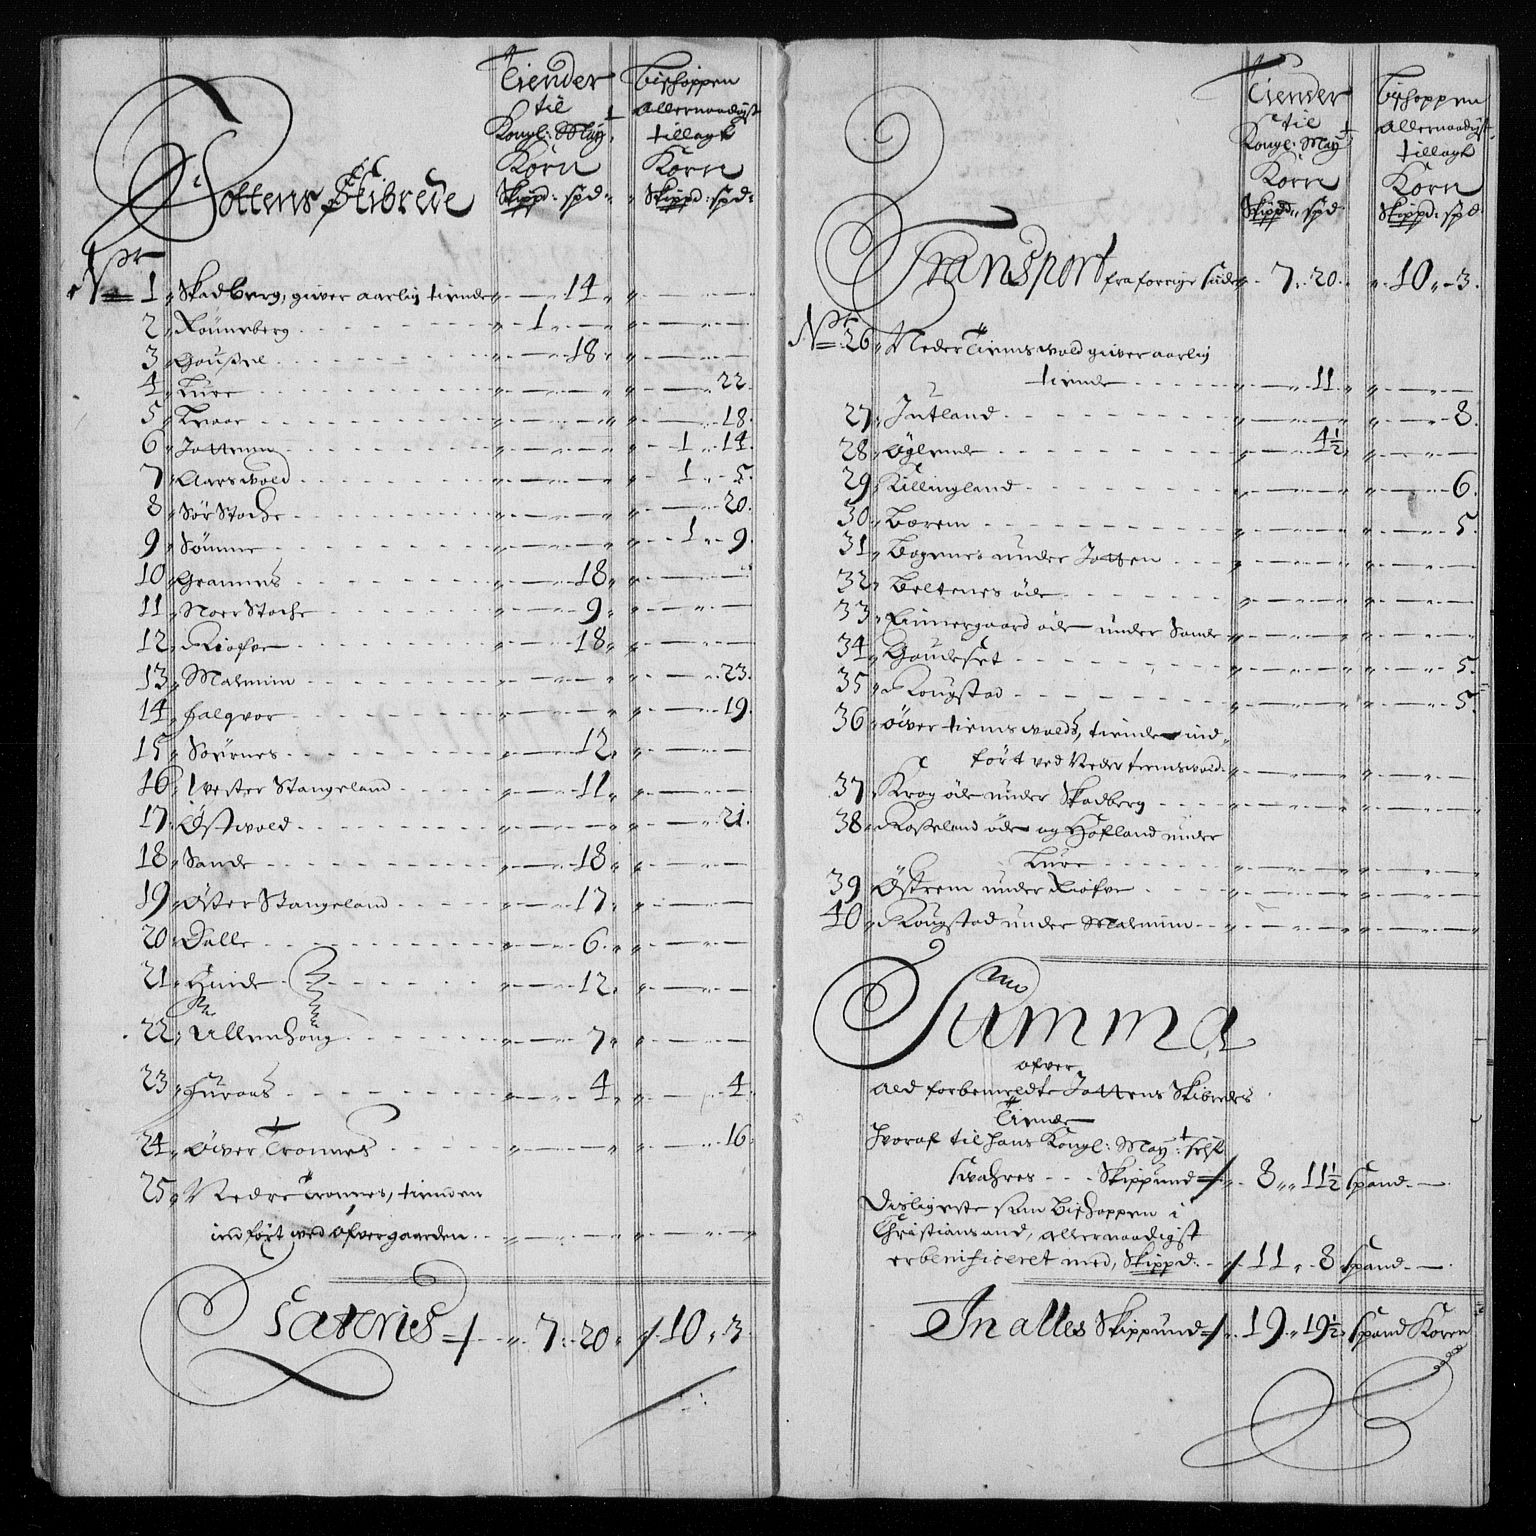 Jottens Skibrede
Tiender til Kongl: May.t Korn Skippd: spd:
Bishoppen allernaadigst tillagt Korn Skippd: spd:
No 1 Skadberg, giver aarlig tiende 14
2 Røuneberg 1
3 Gousel 18
4 Lure 22
5 Traae 18
6 Jottenn 1 14
7 Aarsvold 1 5
8 Sør Stoche 20
9 Sømme 1 9
10 Grannes 18
11 Noer Stoche 9
12 Riofve 18
13 Malmim 23
14 Falqvor 19
15 Sørrnes 12
16 Wester Stangeland 11
17 Østvold 21
18 Sande 18
19 Øster Stangeland 17
20 Dalle 6
21 Hinde 12
22 Ullenhoug 7
23 Furaas 4 4
24 Øiver Tronnes 16
25 Nedre Tronnes, tienden
indført ved øfvergaarden
Lateries 7. 20 10. 3
Tiender til Kongl: May.t Korn Skippd: spd:
Bishoppen allernaadigst tillagt Korn Skippd: spd:
Transport fra forrige side 7. 20. 10. 3.
No 26 Neder Tiemsvold giver aarlig
tiende 11
27 Jutland 8
28 Øglende 4½
29 Killingland 6
30 Bærem 5
31 Bogenes under Jotten
32 Beltenes øde
33 Finnergaard øde under Sande
34 Goudeset 5
35 Rougstad 5
36 Øiver tiemsvolds, tiende ind-
ført ved Neder tiemsvold
37 Krog øde under Skadberg
38 Rosseland øde og Hofland under
Lure
39 Østrem under Riofve
40 Rougstad under Malmim
Summa
ofver
ald forbemeldte Jottens Skibredes
Tiende
Hvoraf til hans Kongl: May.t self
svahres - - - Skippund 8 11½ spand
Disligeste som Bishoppen i
Christiansand, allernaadigst
er benificeret med, Skippd: 11 8 spand
In alles Skippund 19 19½ spand Koren